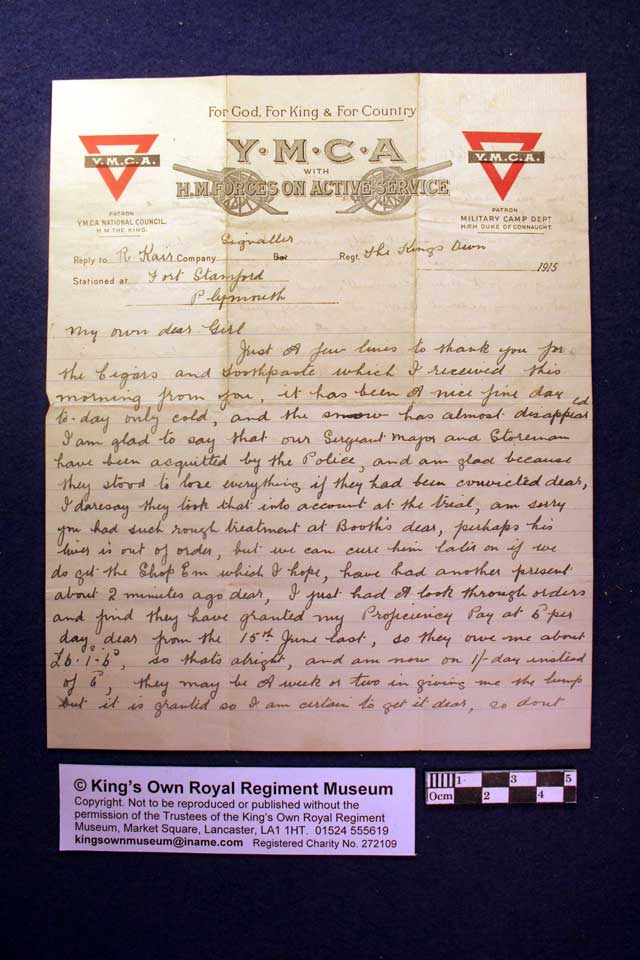 For God, For King & For Country
Y·M·C·A
WITH
H.M. FORCES ON ACTIVE SERVICE
Y.M.C.A.
PATRON
Y.M.C.A NATIONAL COUNCIL.
H.M. THE KING.
Y.M.C.A.
PATRON
MILITARY CAMP DEPT
H.R.H DUKE OF CONNAUGHT.
Reply to R. Kair Company Signaller Bat Regt. The Kings Own
Stationed at Fort Stamford 1915
Plymouth
My own dear Girl
Just A few lines to thank you for
the Cigars and toothpaste which I received this
morning from you, it has been A nice fine day
to-day only cold, and the snow has almost disappeared
I am glad to say that our Sergeant Major and Storeman
have been acquitted by the Police, and am glad because
they stood to lose everything if they had been convicted dear,
I daresay they took that into account at the trial, am sorry
you had such rough treatment at Booth's dear, perhaps his
liver is out of order, but we can cure him later on if we
do get the Shop Em which I hope, have had another present
about 2 minutes ago dear, I just had A look through orders
and find they have granted my Proficiency Pay at 6d per
day, dear from the 15th June last, so they owe me about
£6·1s-6d, so thats alright, and am now on 1/- day instead
of 6d, they may be A week or two in giving me the lump
but it is granted so I am certain to get it dear, so dont
© King's Own Royal Regiment Museum
Copyright. Not to be reproduced or published without the
permission of the Trustees of the King's Own Royal Regiment
Museum, Market Square, Lancaster, LA1 1HT. 01524 555619
kingsownmuseum@iname.com Registered Charity No. 272109
0cm 1 2 3 4 5